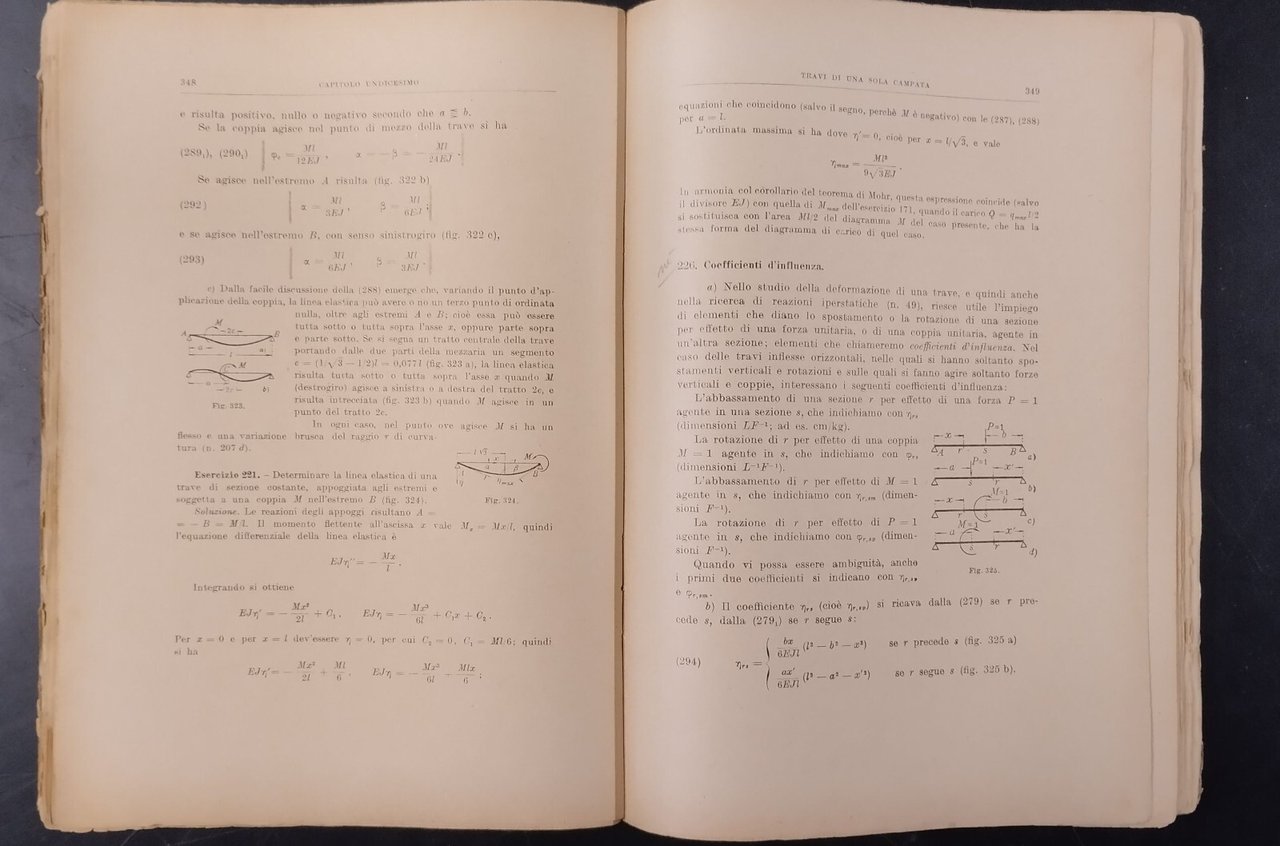 348
CAPITOLO UNDICESIMO
e risulta positivo, nullo o negativo secondo che a ⪌ b.
Se la coppia agisce nel punto di mezzo della trave si ha
(289₁), (290₁) φc = Ml/12EJ , α = − β = − Ml/24EJ .
Se agisce nell'estremo A risulta (fig. 322 b)
(292) α = Ml/3EJ , β = Ml/6EJ ;
e se agisce nell'estremo B, con senso sinistrogiro (fig. 322 c),
(293) α = Ml/6EJ , β = Ml/3EJ .
c) Dalla facile discussione della (288) emerge che, variando il punto d'ap-
plicazione della coppia, la linea elastica può avere o no un terzo punto di ordinata
nulla, oltre agli estremi A e B; cioè essa può essere
tutta sotto o tutta sopra l'asse x, oppure parte sopra
e parte sotto. Se si segna un tratto centrale della trave
portando dalle due parti della mezzaria un segmento
c = (1/√3 − 1/2)l = 0,077 l (fig. 323 a), la linea elastica
risulta tutta sotto o tutta sopra l'asse x quando M
(destrogiro) agisce a sinistra o a destra del tratto 2c, e
risulta intrecciata (fig. 323 b) quando M agisce in un
punto del tratto 2c.
M
A 2c B
a
l a)
M
a
2c b)
Fig. 323.
In ogni caso, nel punto ove agisce M si ha un
flesso e una variazione brusca del raggio r di curva-
tura (n. 207 d).
Esercizio 221. – Determinare la linea elastica di una
trave di sezione costante, appoggiata agli estremi e
soggetta a una coppia M nell'estremo B (fig. 324).
l/√3
x M
α β
η ηmax
Fig. 324.
Soluzione. Le reazioni degli appoggi risultano A =
= − B = M/l. Il momento flettente all'ascissa x vale Mx = Mx/l, quindi
l'equazione differenziale della linea elastica è
EJη'' = − Mx/l .
Integrando si ottiene
EJη' = − Mx²/2l + C₁ , EJη = − Mx³/6l + C₁x + C₂ .
Per x = 0 e per x = l dev'essere η = 0, per cui C₂ = 0, C₁ = Ml/6; quindi
si ha
EJη' = − Mx²/2l + Ml/6 , EJη = − Mx³/6l + Mlx/6 ;
TRAVI DI UNA SOLA CAMPATA
349
equazioni che coincidono (salvo il segno, perchè M è negativo) con le (287), (288)
per a = l.
L'ordinata massima si ha dove η' = 0, cioè per x = l/√3, e vale
ηmax = Ml²/9√3EJ .
In armonia col corollario del teorema di Mohr, questa espressione coincide (salvo
il divisore EJ) con quella di Mmax dell'esercizio 171, quando il carico Q = qmax l/2
si sostituisca con l'area Ml/2 del diagramma M del caso presente, che ha la
stessa forma del diagramma di carico di quel caso.
226. Coefficienti d'influenza.
a) Nello studio della deformazione di una trave, e quindi anche
nella ricerca di reazioni iperstatiche (n. 49), riesce utile l'impiego
di elementi che diano lo spostamento o la rotazione di una sezione
per effetto di una forza unitaria, o di una coppia unitaria, agente in
un'altra sezione; elementi che chiameremo coefficienti d'influenza. Nel
caso delle travi inflesse orizzontali, nelle quali si hanno soltanto spo-
stamenti verticali e rotazioni e sulle quali si fanno agire soltanto forze
verticali e coppie, interessano i seguenti coefficienti d'influenza:
L'abbassamento di una sezione r per effetto di una forza P = 1
agente in una sezione s, che indichiamo con ηrs
(dimensioni LF⁻¹; ad es. cm/kg).
La rotazione di r per effetto di una coppia
M = 1 agente in s, che indichiamo con φrs
(dimensioni L⁻¹F⁻¹).
L'abbassamento di r per effetto di M = 1
agente in s, che indichiamo con ηr,sm (dimen-
sioni F⁻¹).
La rotazione di r per effetto di P = 1
agente in s, che indichiamo con φr,sp (dimen-
sioni F⁻¹).
Quando vi possa essere ambiguità, anche
i primi due coefficienti si indicano con ηr,sp
e φr,sm.
x P=1 b
A r s B a)
a P=1 x'
s r b)
x M=1 b
r s c)
a M=1 x'
s r d)
Fig. 325.
b) Il coefficiente ηrs (cioè ηr,sp) si ricava dalla (279) se r pre-
cede s, dalla (279₁) se r segue s:
(294) ηrs = { bx/6EJl (l² − b² − x²) se r precede s (fig. 325 a)
ax'/6EJl (l² − a² − x'²) se r segue s (fig. 325 b).